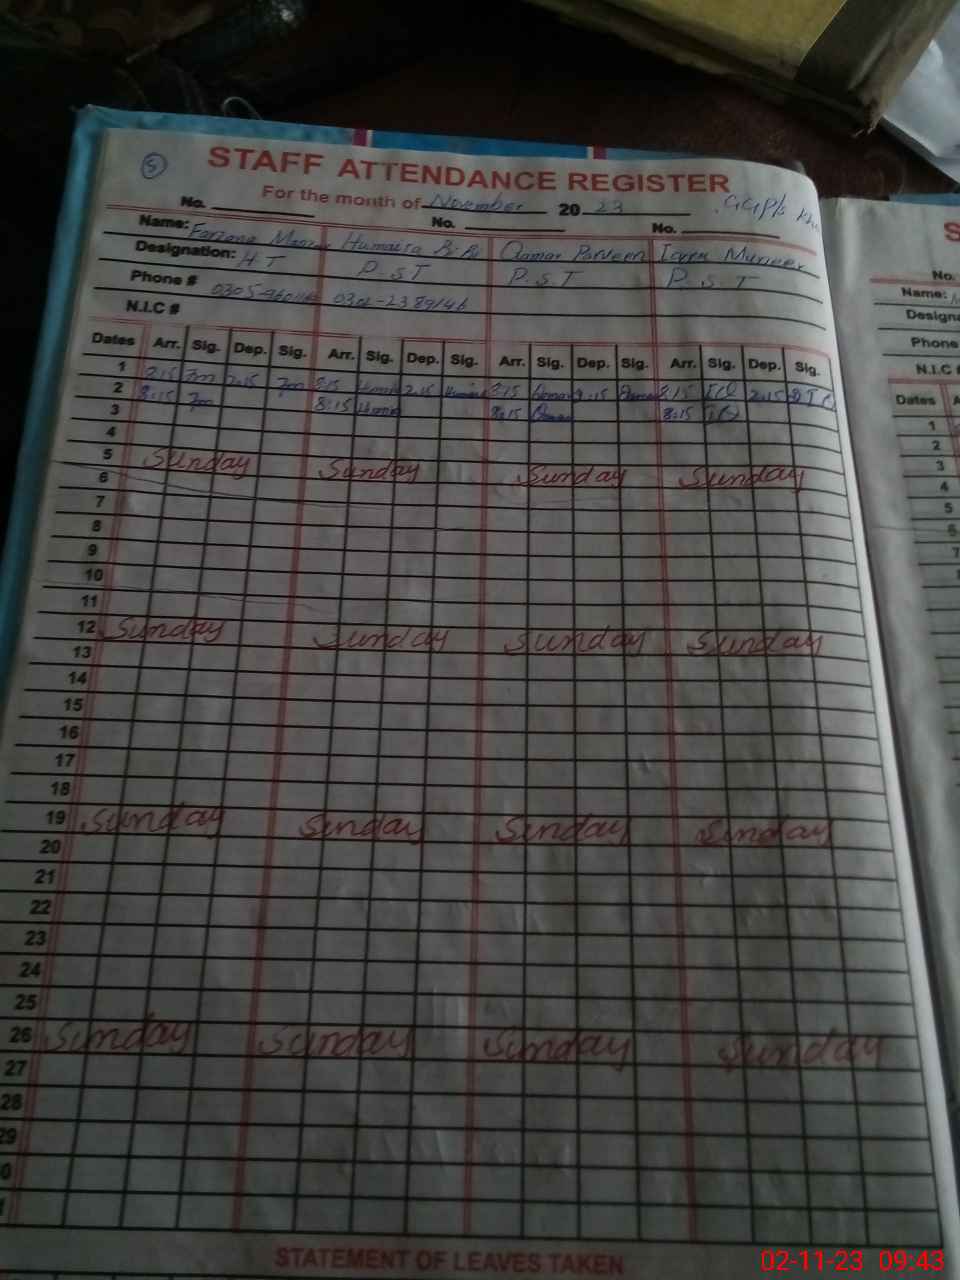 5
STAFF ATTENDANCE REGISTER
For the month of November 2023
No. No. No.
Name: Farzana Humaira Bi Bi Qamar Parveen Iqra Muneer
Designation: H T P.S.T P.S.T P.S.T
Phone # 0301-2389146
N.I.C #
Dates Arr. Sig. Dep. Sig. Arr. Sig. Dep. Sig. Arr. Sig. Dep. Sig. Arr. Sig. Dep. Sig.
1 8:15 2:15 8:15 2:15 8:15 2:15 8:15 2:15
2 8:15 8:15 8:15 8:15
3
4
5 Sunday Sunday Sunday Sunday
6
7
8
9
10
11
12 Sunday Sunday Sunday Sunday
13
14
15
16
17
18
19 Sunday Sunday Sunday Sunday
20
21
22
23
24
25
26 Sunday Sunday Sunday Sunday
27
28
29
0
1
STATEMENT OF LEAVES TAKEN
S
No.
Name:
Designa
Phone
N.I.C #
Dates A
1
2
3
4
5
6
7
02-11-23 09:43